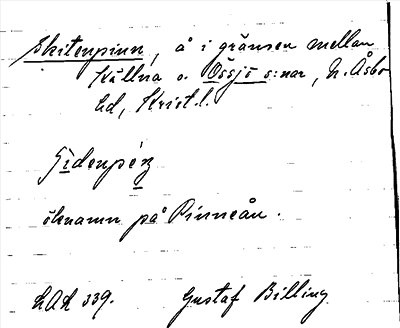 Skitenpinn, å i gränsen mellan
Källna o. Össjö s:nar, N. Åsbo
hd, Krist. l.
öknamn på Pinneån.
LAL 339. Gustaf Billing